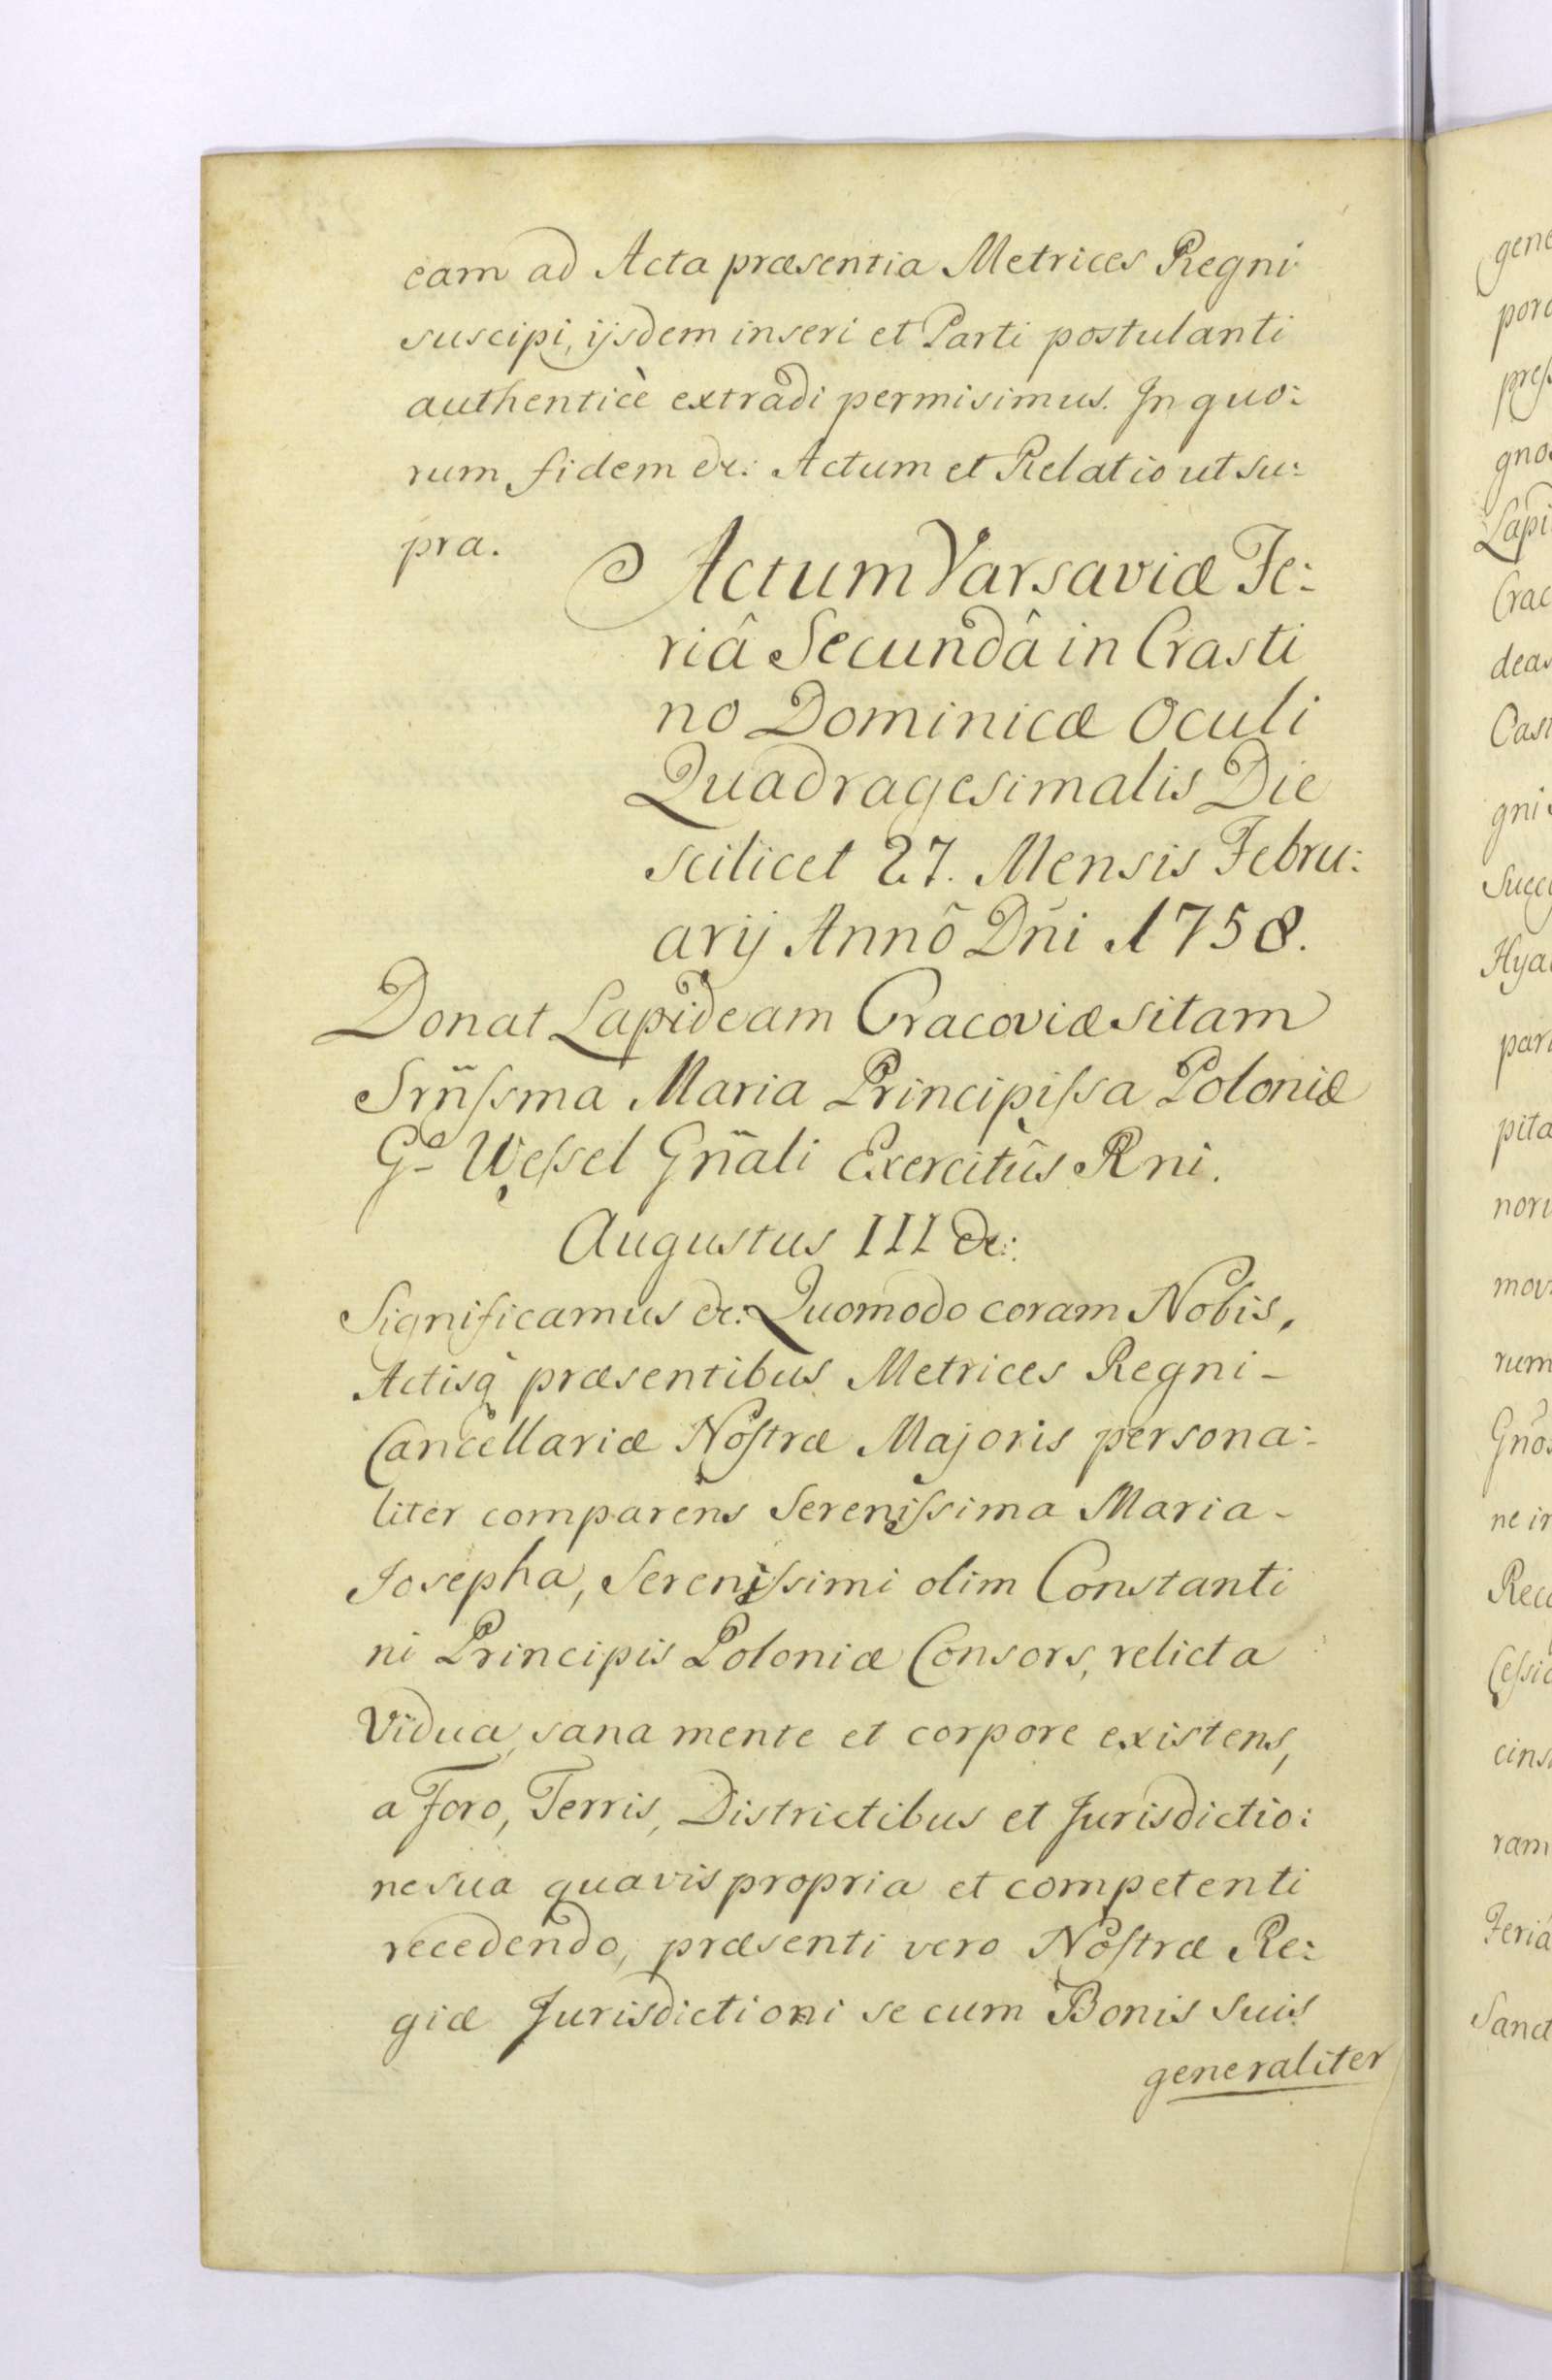 eam ad Acta præsentia Metrices Regni
suscipi, ijsdem inseri et Parti postulanti
authenticè extradi permisimus. In quo:
rum fidem &c: Actum et Relatio ut su:
pra.
Actum Varsaviæ Fe:
riâ Secundâ in Crasti
no Dominicæ Oculi
Quadragesimalis Die
scilicet 27. Mensis Febru:
arij Annõ Dñi 1758.
Donat Lapideam Cracoviæ sitam
Srñſsma Maria Principiſsa Poloniæ
Go Weſsel Gñali Exercitûs Rni.
Augustus III &c:
Significamus &c: Quomodo coram Nobis,
Actisq̀ præsentibus Metrices Regni -
Cancellariæ Noſtræ Majoris persona:
liter comparens Sereniſsima Maria -
Josepha, Sereniſsimi olim Constanti
ni Principis Poloniæ Consors, relicta
Vidua, sana mente et corpore existens,
a Foro, Terris, Districtibus et Jurisdictio:
ne sua quavis propria et competenti
recedendo, præsenti vero Noſtræ Re:
giæ Jurisdictioni se cum Bonis suis
generaliter
gene
poro
preſ
gno
Lapi
Crac
deas
Cast
gni
Succ
Hya
par
pita
noru
mov
rum
Gño
ne in
Reco
Ceſsio
cins
ram
Feriâ
Sanct